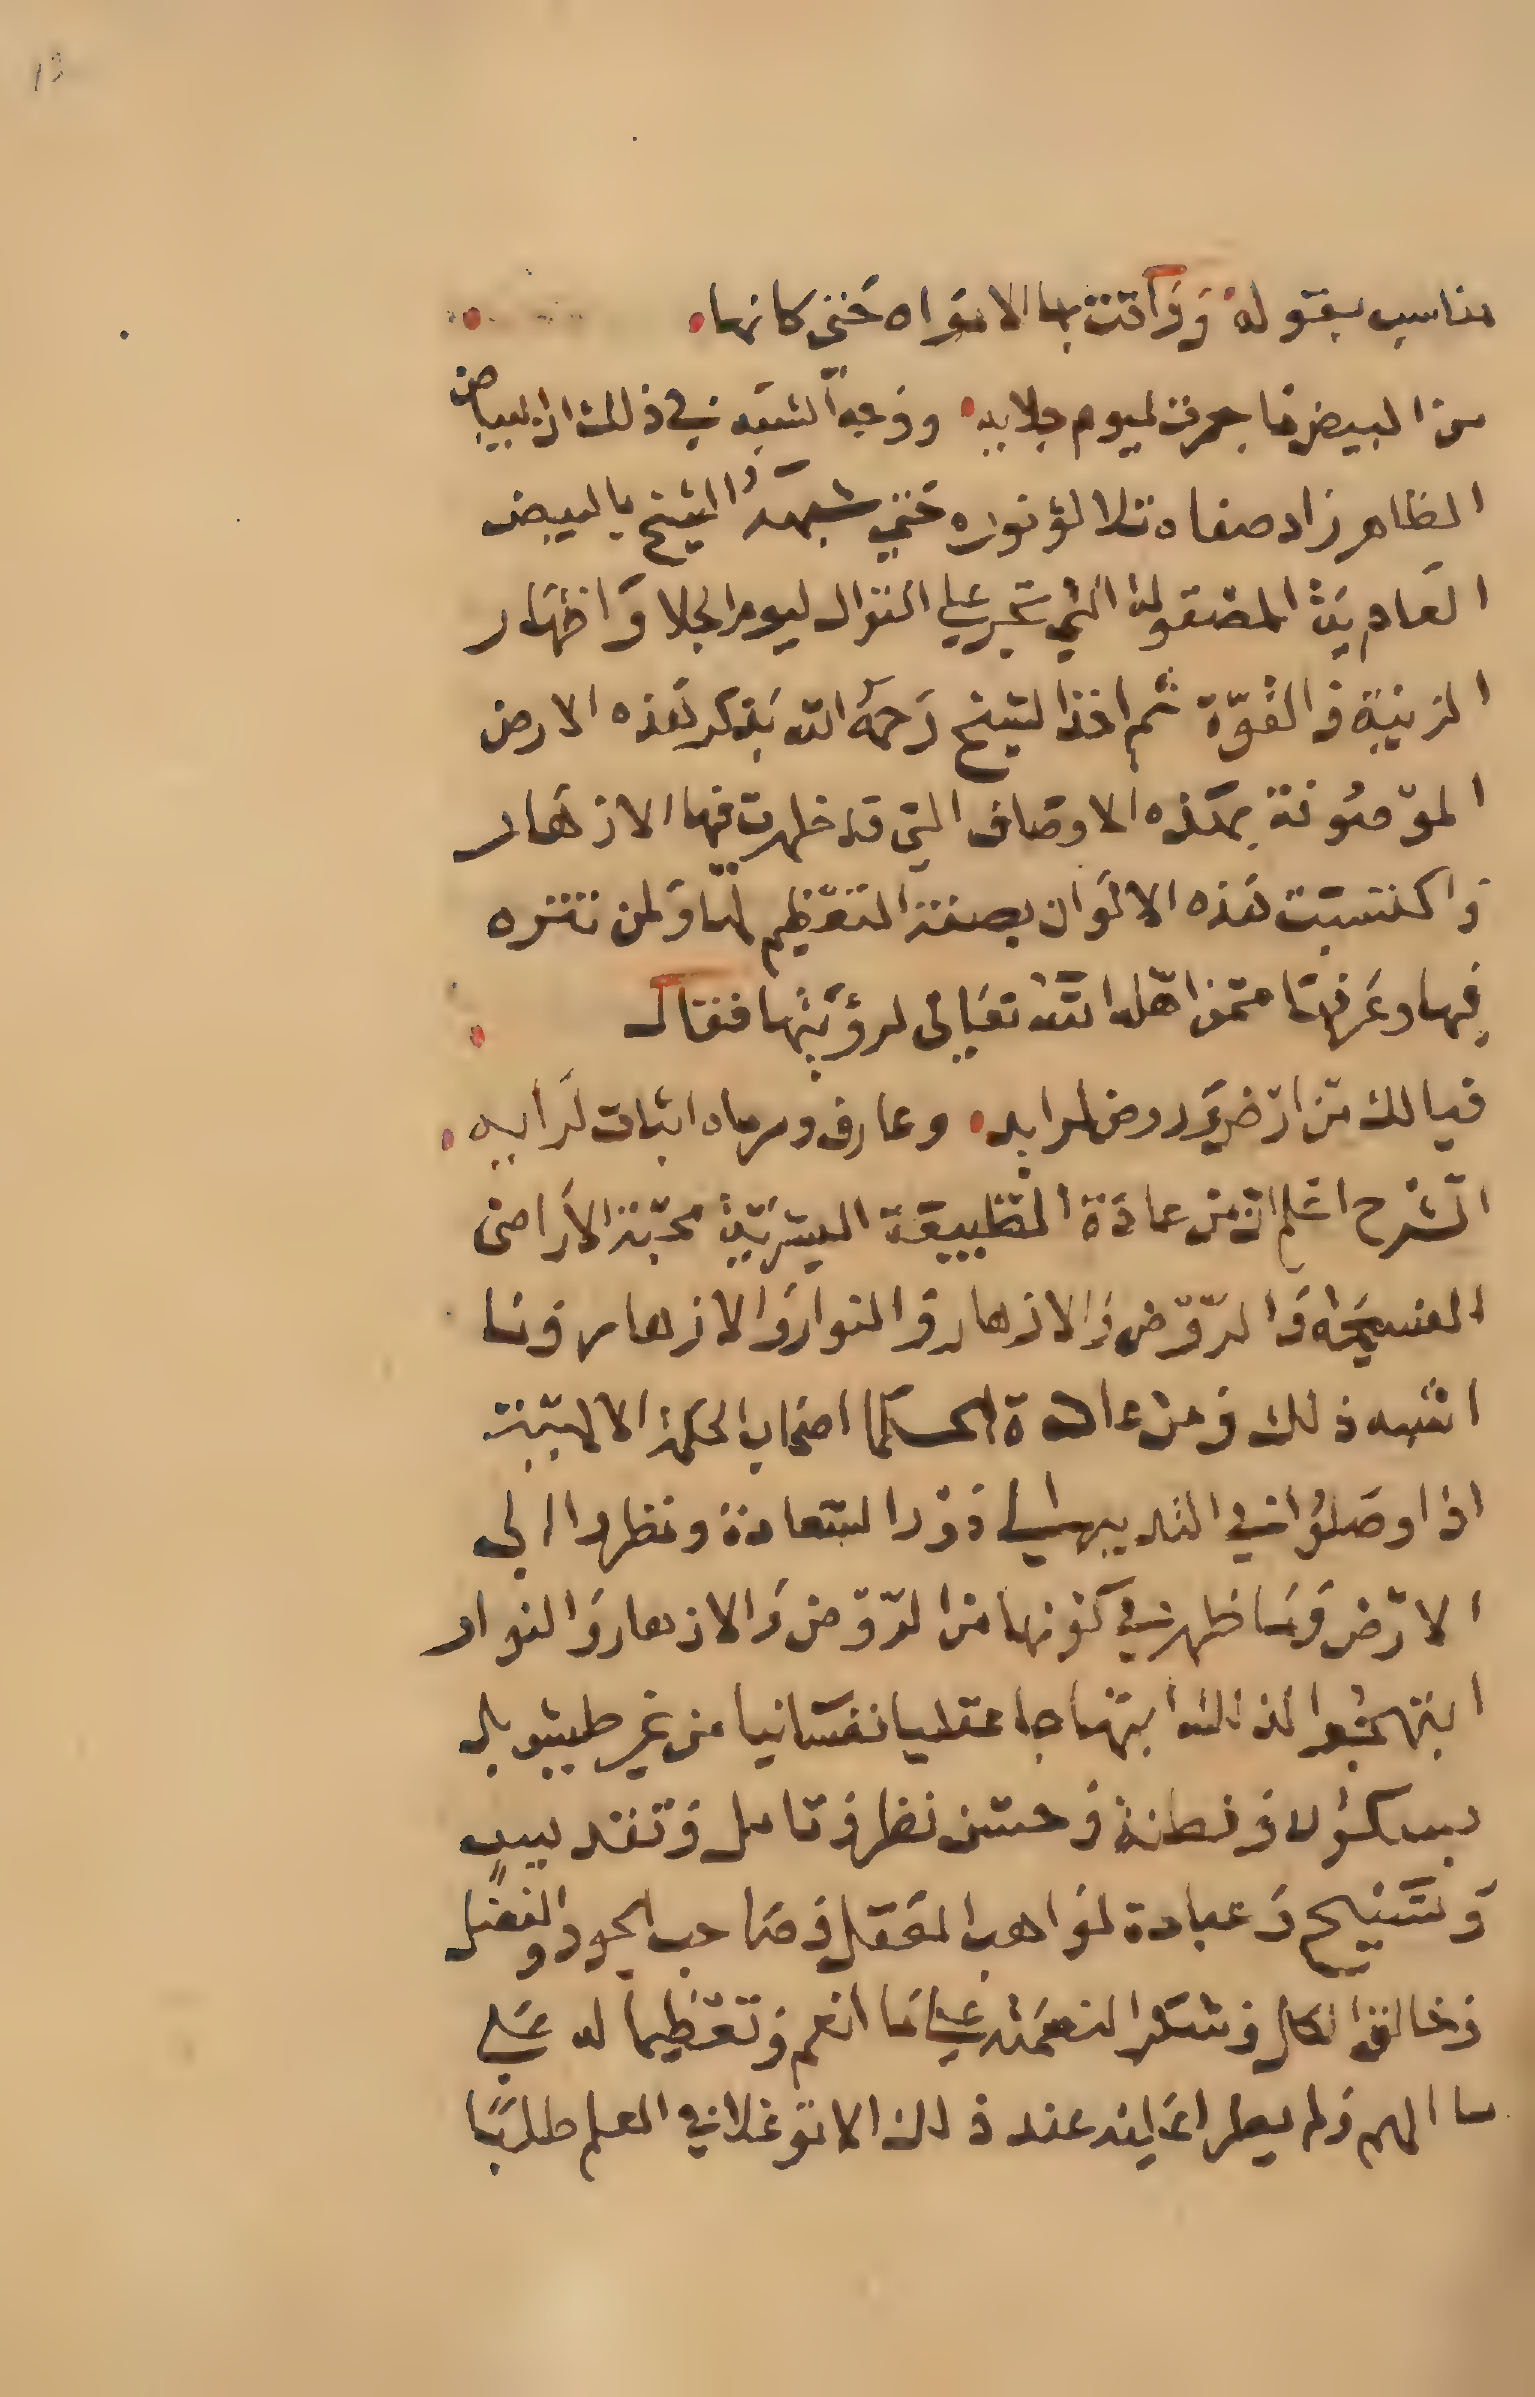 مناسب بقوله وَوَافت بها الامواه حَتي كانها
من البيض ما جرت ليوم جلابيه ووَجه الشبَه في ذلك ان البياض
الظاهر زاد صفاه تلالؤ نوره حَتي شبهَهُ الشيخ بالبيض
العَاديَة المصْقولة التي تجر علي النوال ليوم الجلا وَاظهَار
الزينة وَالقوّة ثم اخذ الشيخ رَحمهُ الله يَذكر هَذه الارض
الموْصُوفة بهَذه الاوصَاف التي قد ظهرت فيها الازهَار
وَاكتسبَت هَذه الالوَان بصفة التعَظيم لهَا وَلمن تنزه
فيها وعَرفهَا ممّن اهّله الله تعَالى لرؤيَتها فقال
فيالك من ارض وَروض لرايد وعارف ومرماه اثبات لرَاييه
الشرْح اعْلم ان من عادَة الطبيعَة البشرَيّة محَبّة الارَاضى
الفسيحَة وَالرّوْض وَالازهار وَالنوار وَالازهار وَمَا
اشبه ذلك وَمن عادة الحكمَا اصحَاب الحكمة الالهيّة
اذا وصَلوُا في التدبير الي دَوْر السَّعادة ونظروا الى
الارْض وَمَا ظهر في كوْنها من الرّوْض وَالازهار وَالنوار
ابتهجُوا لذلك ابتهَاجا عقليا نفسَانيا من غير طيش بل
بسكوُن وَفطنة وَحسْن نظر وَتامل وَتقديس
وَتسَبْيح وَعبادة لوَاهب العَقل وَصَاحب الجود والفضْل
وَخالق الكل وَشكرا لنعمَته علي مَا انعم وَتعْظيما له عَلي
ما الهم وَلم يطرا عَليه عند ذلك الا توغلا في العلم طلبًا